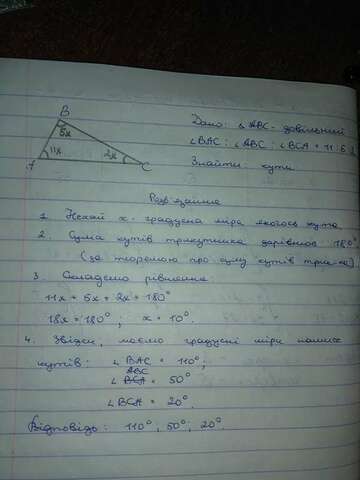 B
5x
11x
2x
C
Дано: ∠ABC - довільний
∠BAC : ∠ABC : ∠BCA = 11:5:2
Знайти: кути
Розв'язання
1. Нехай x - градусна міра якогось кута
2. Сума кутів трикутника дорівнює 180°
(за теоремою про суму кутів три-ка)
3. Складемо рівняння:
11x + 5x + 2x = 180°
18x = 180° ; x = 10°.
4. Звідси, маємо градусні міри наших
кутів: ∠BAC = 110°;
∠ABC = 50°
∠BCA = 20°.
Відповідь: 110°, 50°, 20°.